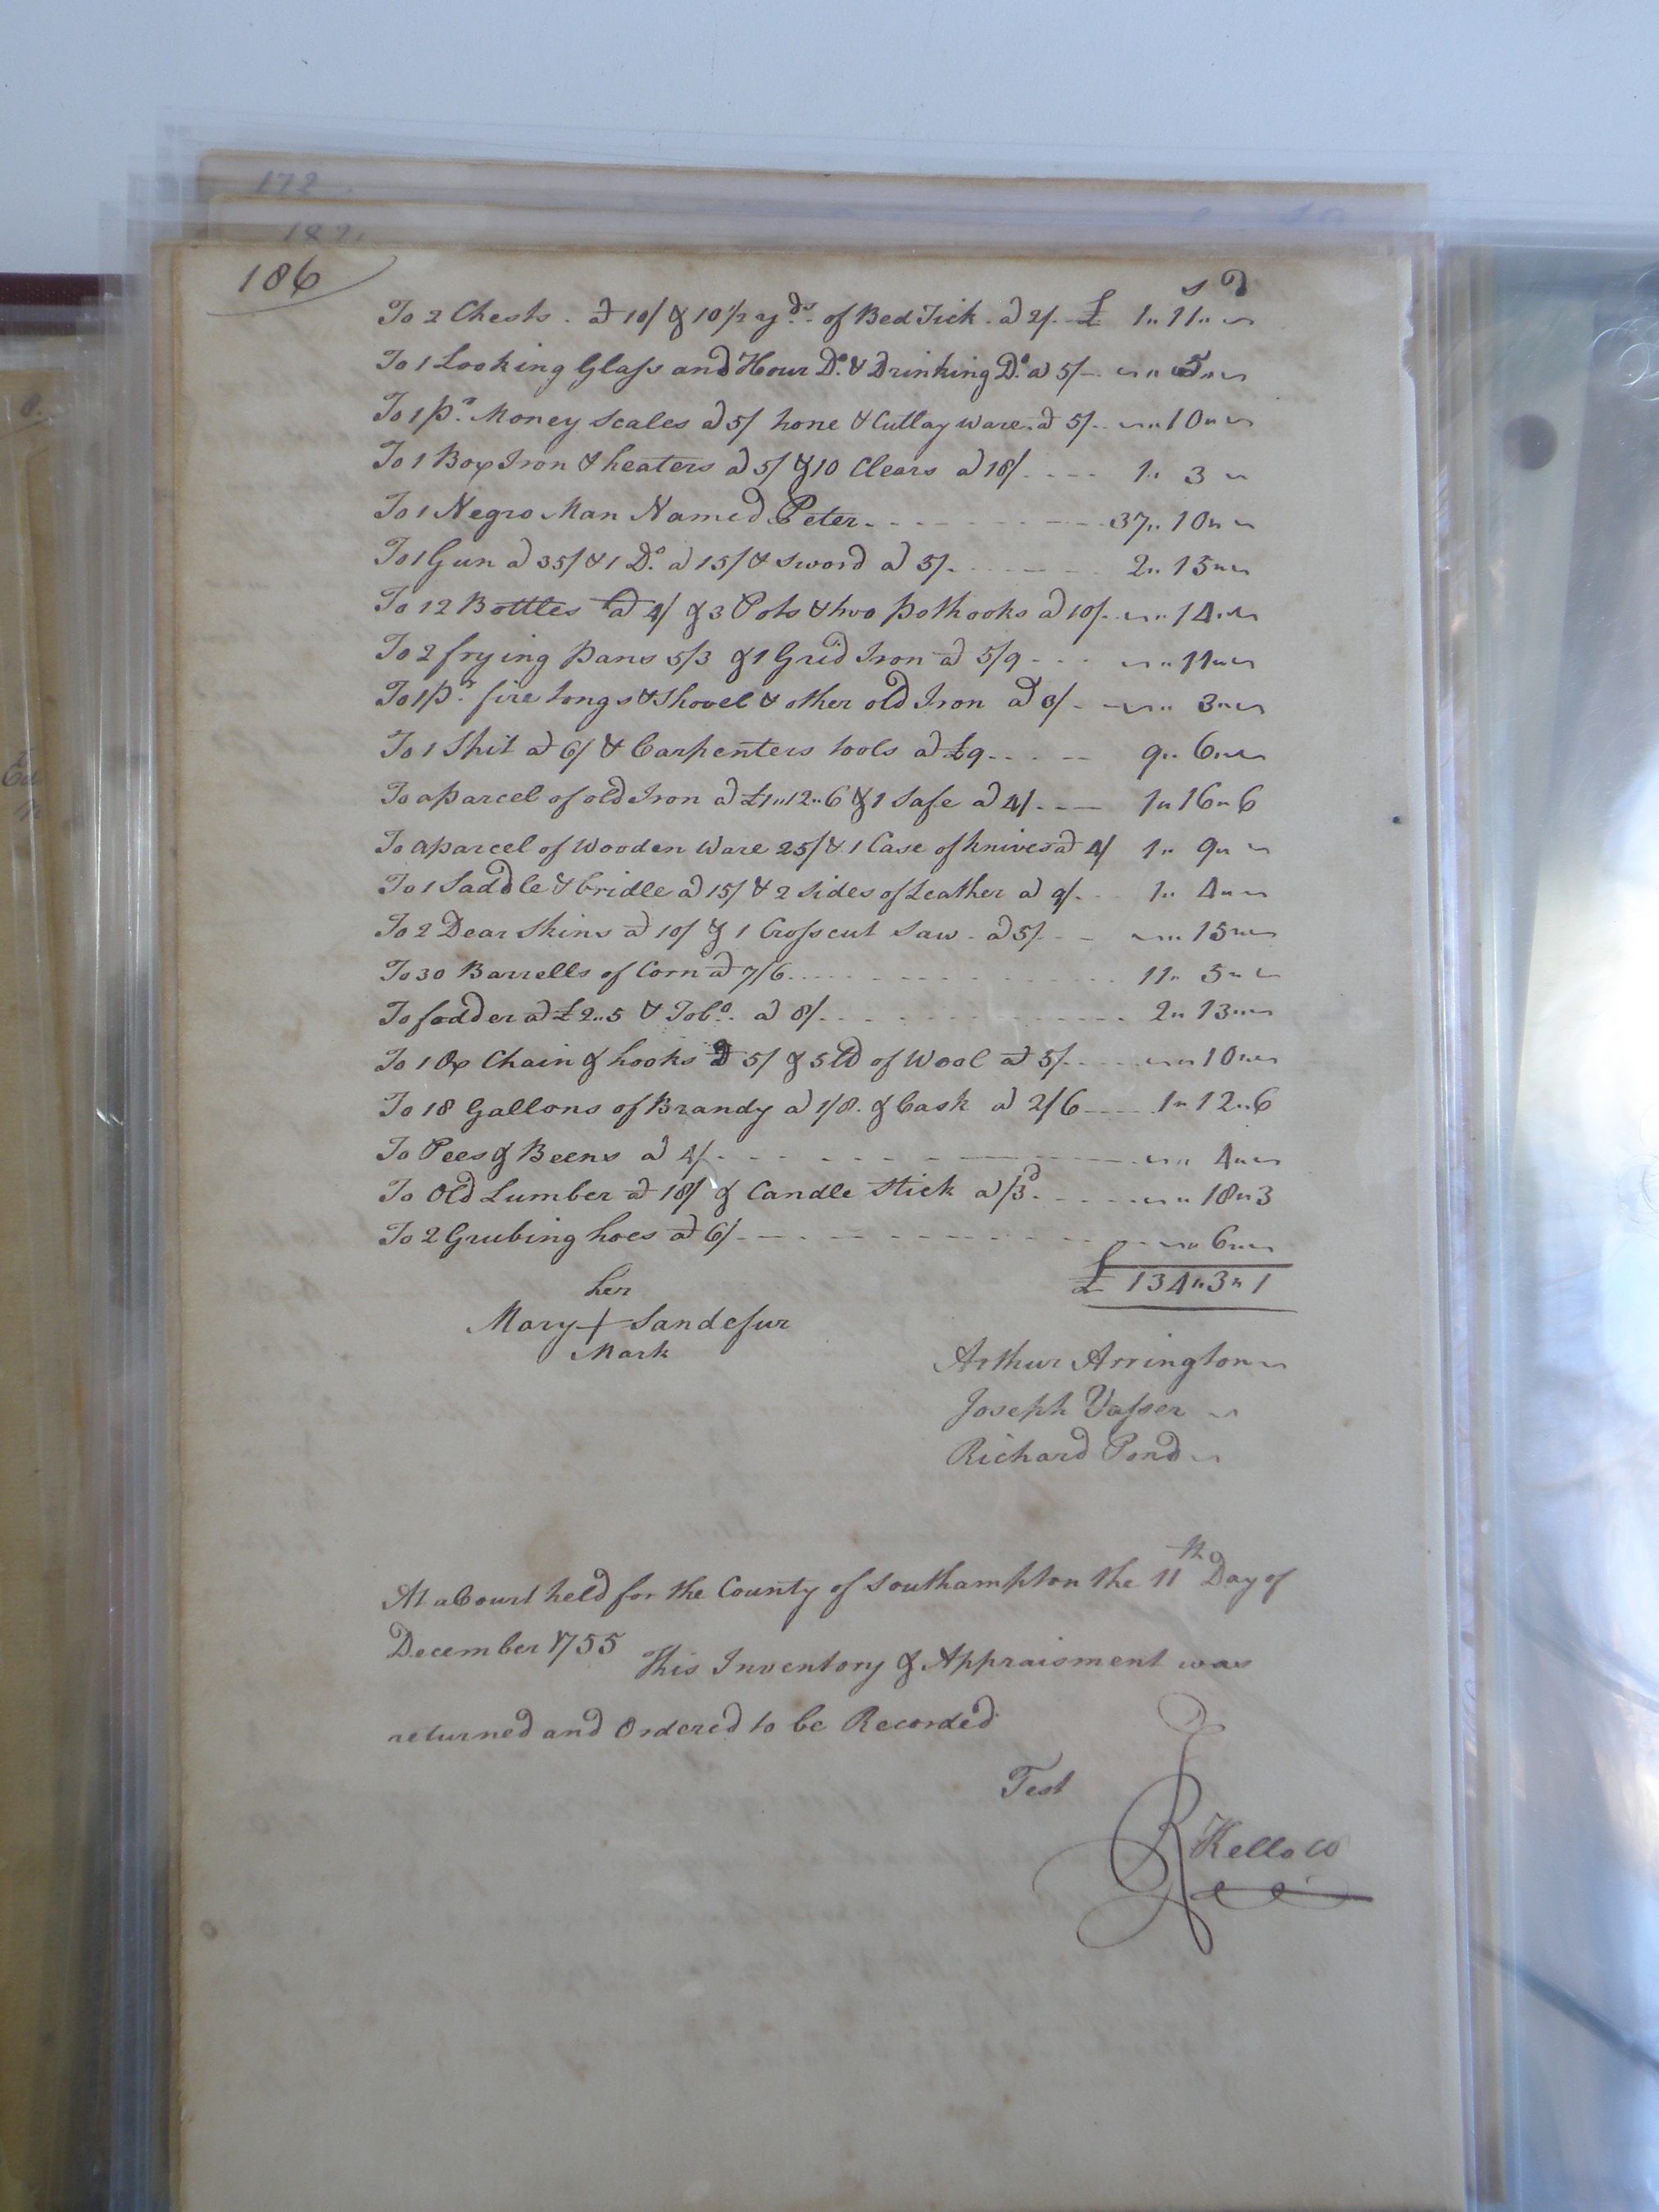 172
182
186
S D
To 2 Chests . at 10/ & 10 1/2 yds. of Bed Tick . at 2/. £ 1 " 11 " ~
To 1 Looking Glass and Hour Do. & Drinking Do. at 5/- ~ " 5 " ~
To 1 pr. Money Scales at 5/ hone & Cutlay ware . at 5/. ~ " 10 " ~
To 1 Box Iron & heaters at 5/ & 10 Clears at 18/. - - - 1 " 3 ~
To 1 Negro Man Named Peter. - - - - 37 " 10 " ~
To 1 Gun at 35/ & 1 Do. at 15/ & Sword at 5/. - - - 2 " 15 " ~
To 12 Bottles at 4/ & 3 Pots & two pothooks at 10/. ~ " 14 " ~
To 2 frying pans 5/3 & 1 Grid Iron at 5/9 - - - ~ " 11 " ~
To 1 pr. fire tongs & Shovel & other old Iron at 3/ - ~ " 3 " ~
To 1 Spit at 6/ & Carpenters tools at £9 - - - 9 " 6 " ~
To a parcel of old Iron at £1 " 12 " 6 & 1 Safe at 4/. - - 1 " 16 " 6
To a parcel of Wooden Ware 25/ & 1 Case of knives at 4/ 1 " 9 " ~
To 1 Saddle & bridle at 15/ & 2 Sides of Leather at 9/. - 1 " 4 " ~
To 2 Dear Skins at 10/ & 1 Cross cut Saw - at 5/ - - ~ " 15 " ~
To 30 Barrells of Corn at 7/6 - - - - 11 " 5 " ~
To fodder at £2 " 5 & Tobo. at 8/. - - - - 2 " 13 " ~
To 1 Ox Chain & hooks at 5/ & 5 lb of Wool at 5/. - - - ~ " 10 " ~
To 18 Gallons of Brandy at 1/8 . & Cask at 2/6 - - 1 " 12 " 6
To Pees & Beens at 4/ - - - - ~ " 4 " ~
To Old Lumber at 18/ & Candle Stick at /3d. - - - ~ " 18 " 3
To 2 Grubing hoes at 6/ - - - - ~ " 6 " ~
£ 134 " 3 " 1
her
Mary + Sandefur
Mark
Arthur Arrington ~
Joseph Vasser ~
Richard Pond ~
At a Court held for the County of Southampton the 11th Day of
December 1755 This Inventory & Appraisment was
returned and Ordered to be Recorded
Test
R Kello Cl